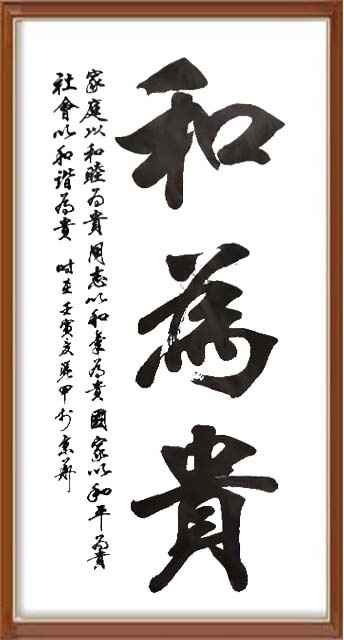 和為貴
家庭以和睦为貴 同志以和為貴 國家以和平为貴
社會以和谐為貴 时在壬寅夏 甲於京華